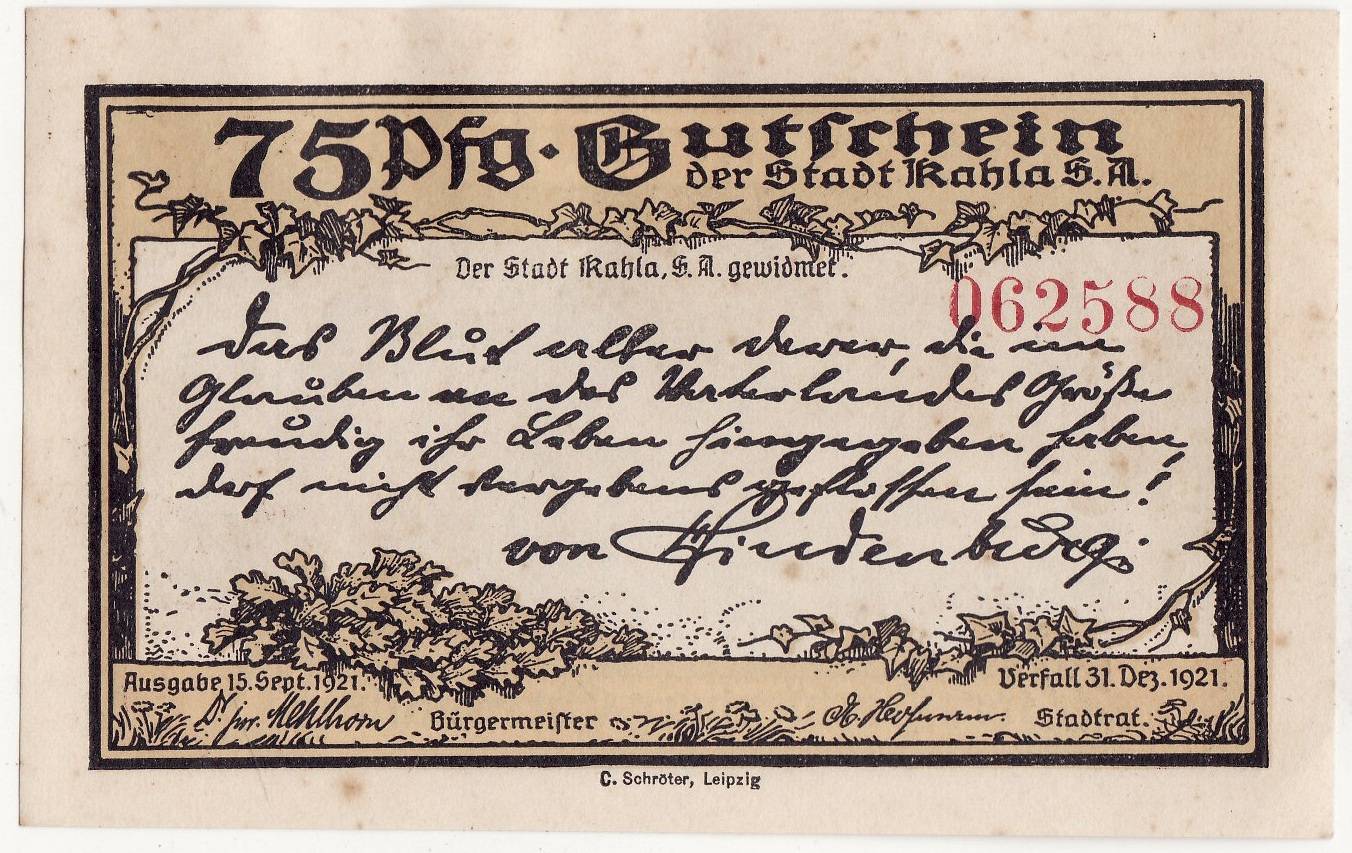 75 Pfg · Gutschein
der Stadt Kahla S. A.
Der Stadt Kahla, S. A. gewidmet.
062588
Das Blut aller derer, die im
Glauben an des Vaterlandes Größe
freudig ihr Leben hingegeben haben,
darf nicht vergebens geflossen sein!
von Hindenburg.
Ausgabe 15. Sept. 1921.
Verfall 31. Dez. 1921.
Dr. jur. Mehlhorn Bürgermeister
Stadtrat.
C. Schröter, Leipzig